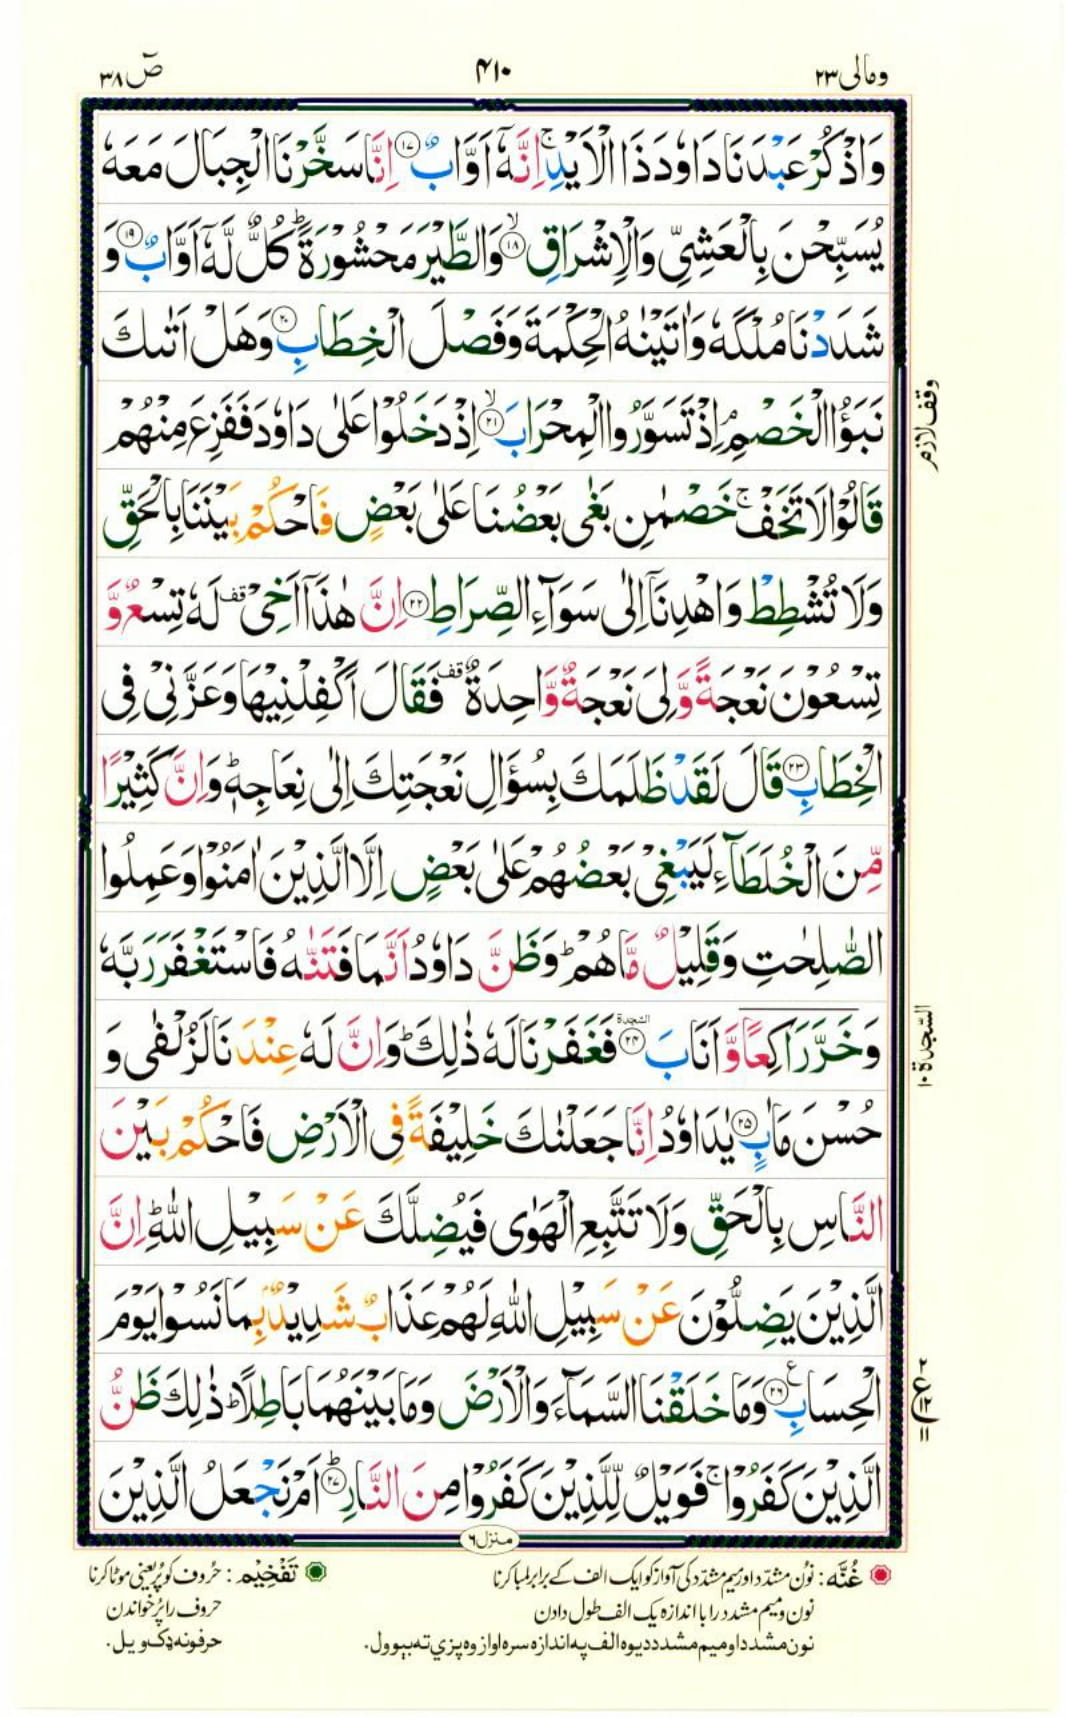 ومالی ۲۳
۴۱۰
صٓ ۳۸
وَاذْكُرْ عَبْدَنَا دَاوٗدَ ذَا الْاَیْدِ ۚ اِنَّهٗۤ اَوَّابٌ ﴿۱۷﴾ اِنَّا سَخَّرْنَا الْجِبَالَ مَعَهٗ
یُسَبِّحْنَ بِالْعَشِیِّ وَالْاِشْرَاقِ ﴿ۙ۱۸﴾ وَالطَّیْرَ مَحْشُوْرَةً ؕ كُلٌّ لَّهٗۤ اَوَّابٌ ﴿۱۹﴾ وَ
شَدَدْنَا مُلْكَهٗ وَاٰتَیْنٰهُ الْحِكْمَةَ وَفَصْلَ الْخِطَابِ ﴿۲۰﴾ وَهَلْ اَتٰىكَ
نَبَؤُا الْخَصْمِ ۘ اِذْ تَسَوَّرُوا الْمِحْرَابَ ﴿ۙ۲۱﴾ اِذْ دَخَلُوْا عَلٰی دَاوٗدَ فَفَزِعَ مِنْهُمْ
وقف لازم
قَالُوْا لَا تَخَفْ ۚ خَصْمٰنِ بَغٰی بَعْضُنَا عَلٰی بَعْضٍ فَاحْكُمْ بَیْنَنَا بِالْحَقِّ
وَلَا تُشْطِطْ وَاهْدِنَاۤ اِلٰی سَوَآءِ الصِّرَاطِ ﴿۲۲﴾ اِنَّ هٰذَاۤ اَخِیْ قف لَهٗ تِسْعٌ وَّ
تِسْعُوْنَ نَعْجَةً وَّلِیَ نَعْجَةٌ وَّاحِدَةٌ قف فَقَالَ اَكْفِلْنِیْهَا وَعَزَّنِیْ فِی
الْخِطَابِ ﴿۲۳﴾ قَالَ لَقَدْ ظَلَمَكَ بِسُؤَالِ نَعْجَتِكَ اِلٰی نِعَاجِهٖ ؕ وَاِنَّ كَثِیْرًا
مِّنَ الْخُلَطَآءِ لَیَبْغِیْ بَعْضُهُمْ عَلٰی بَعْضٍ اِلَّا الَّذِیْنَ اٰمَنُوْا وَعَمِلُوا
الصّٰلِحٰتِ وَقَلِیْلٌ مَّا هُمْ ؕ وَظَنَّ دَاوٗدُ اَنَّمَا فَتَنّٰهُ فَاسْتَغْفَرَ رَبَّهٗ
وَخَرَّ رَاكِعًا وَّاَنَابَ ﴿۲۴﴾ السجدة فَغَفَرْنَا لَهٗ ذٰلِكَ ؕ وَاِنَّ لَهٗ عِنْدَنَا لَزُلْفٰی وَ
السجدة ۱۰
حُسْنَ مَاٰبٍ ﴿۲۵﴾ یٰدَاوٗدُ اِنَّا جَعَلْنٰكَ خَلِیْفَةً فِی الْاَرْضِ فَاحْكُمْ بَیْنَ
النَّاسِ بِالْحَقِّ وَلَا تَتَّبِعِ الْهَوٰی فَیُضِلَّكَ عَنْ سَبِیْلِ اللّٰهِ ؕ اِنَّ
الَّذِیْنَ یَضِلُّوْنَ عَنْ سَبِیْلِ اللّٰهِ لَهُمْ عَذَابٌ شَدِیْدٌۢ بِمَا نَسُوْا یَوْمَ
الْحِسَابِ ﴿۲۶﴾ ع وَمَا خَلَقْنَا السَّمَآءَ وَالْاَرْضَ وَمَا بَیْنَهُمَا بَاطِلًا ؕ ذٰلِكَ ظَنُّ
الَّذِیْنَ كَفَرُوْا ۚ فَوَیْلٌ لِّلَّذِیْنَ كَفَرُوْا مِنَ النَّارِ ﴿ؕ۲۷﴾ اَمْ نَجْعَلُ الَّذِیْنَ
منزل ۶
غُنَّه: نوُن مشدّد اورمیم مشدّد کی آواز کو ایک الف کے برابر لمبا کرنا
نون ومیم مشدد را با اندازه یک الف طول دادن
نون مشدد او میم مشدد دیوه الف په اندازه سره اواز وه پزي ته بیوول.
تَفْخِیْم: حُروف کو پُر یعنی موٹا کرنا
حروف را پُر خواندن
حرفونه ډک ویل.